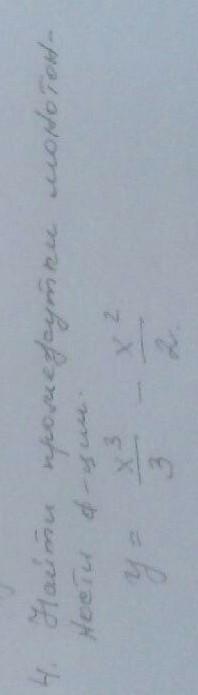 4. Найти промежутки монотон-
ности ф-ции.
y = x³/3 − x²/2